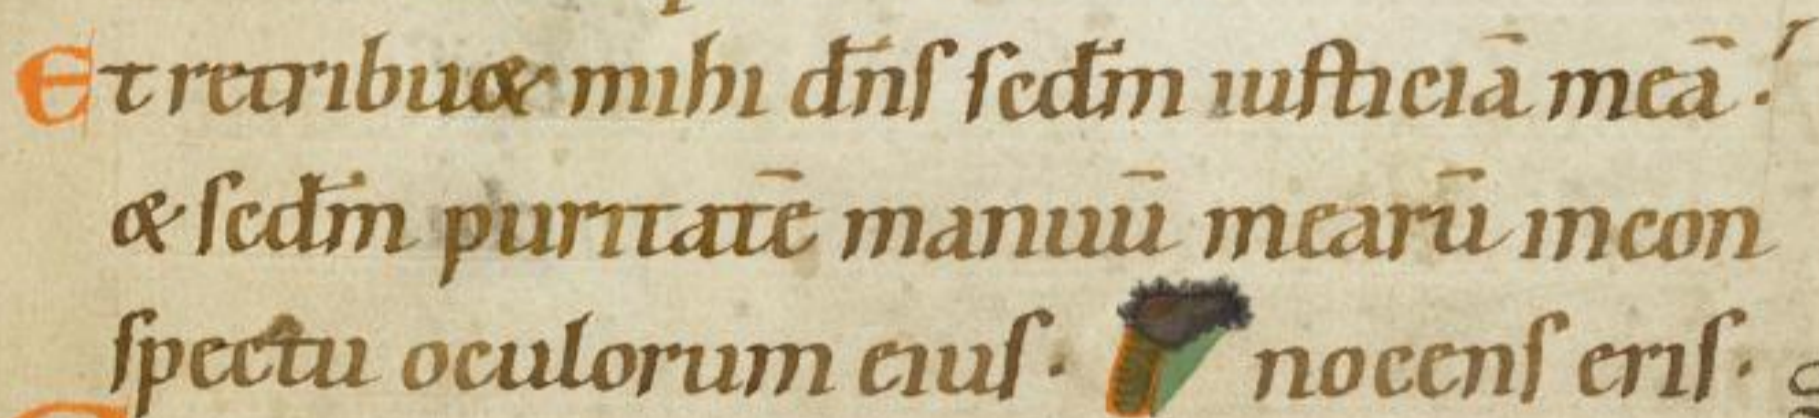 Et retribu& mihi dn̄s scdm̄ iusticiā meā.
& scdm̄ puritatē manuū mearū incon
spectu oculorum eius. nocens eris.